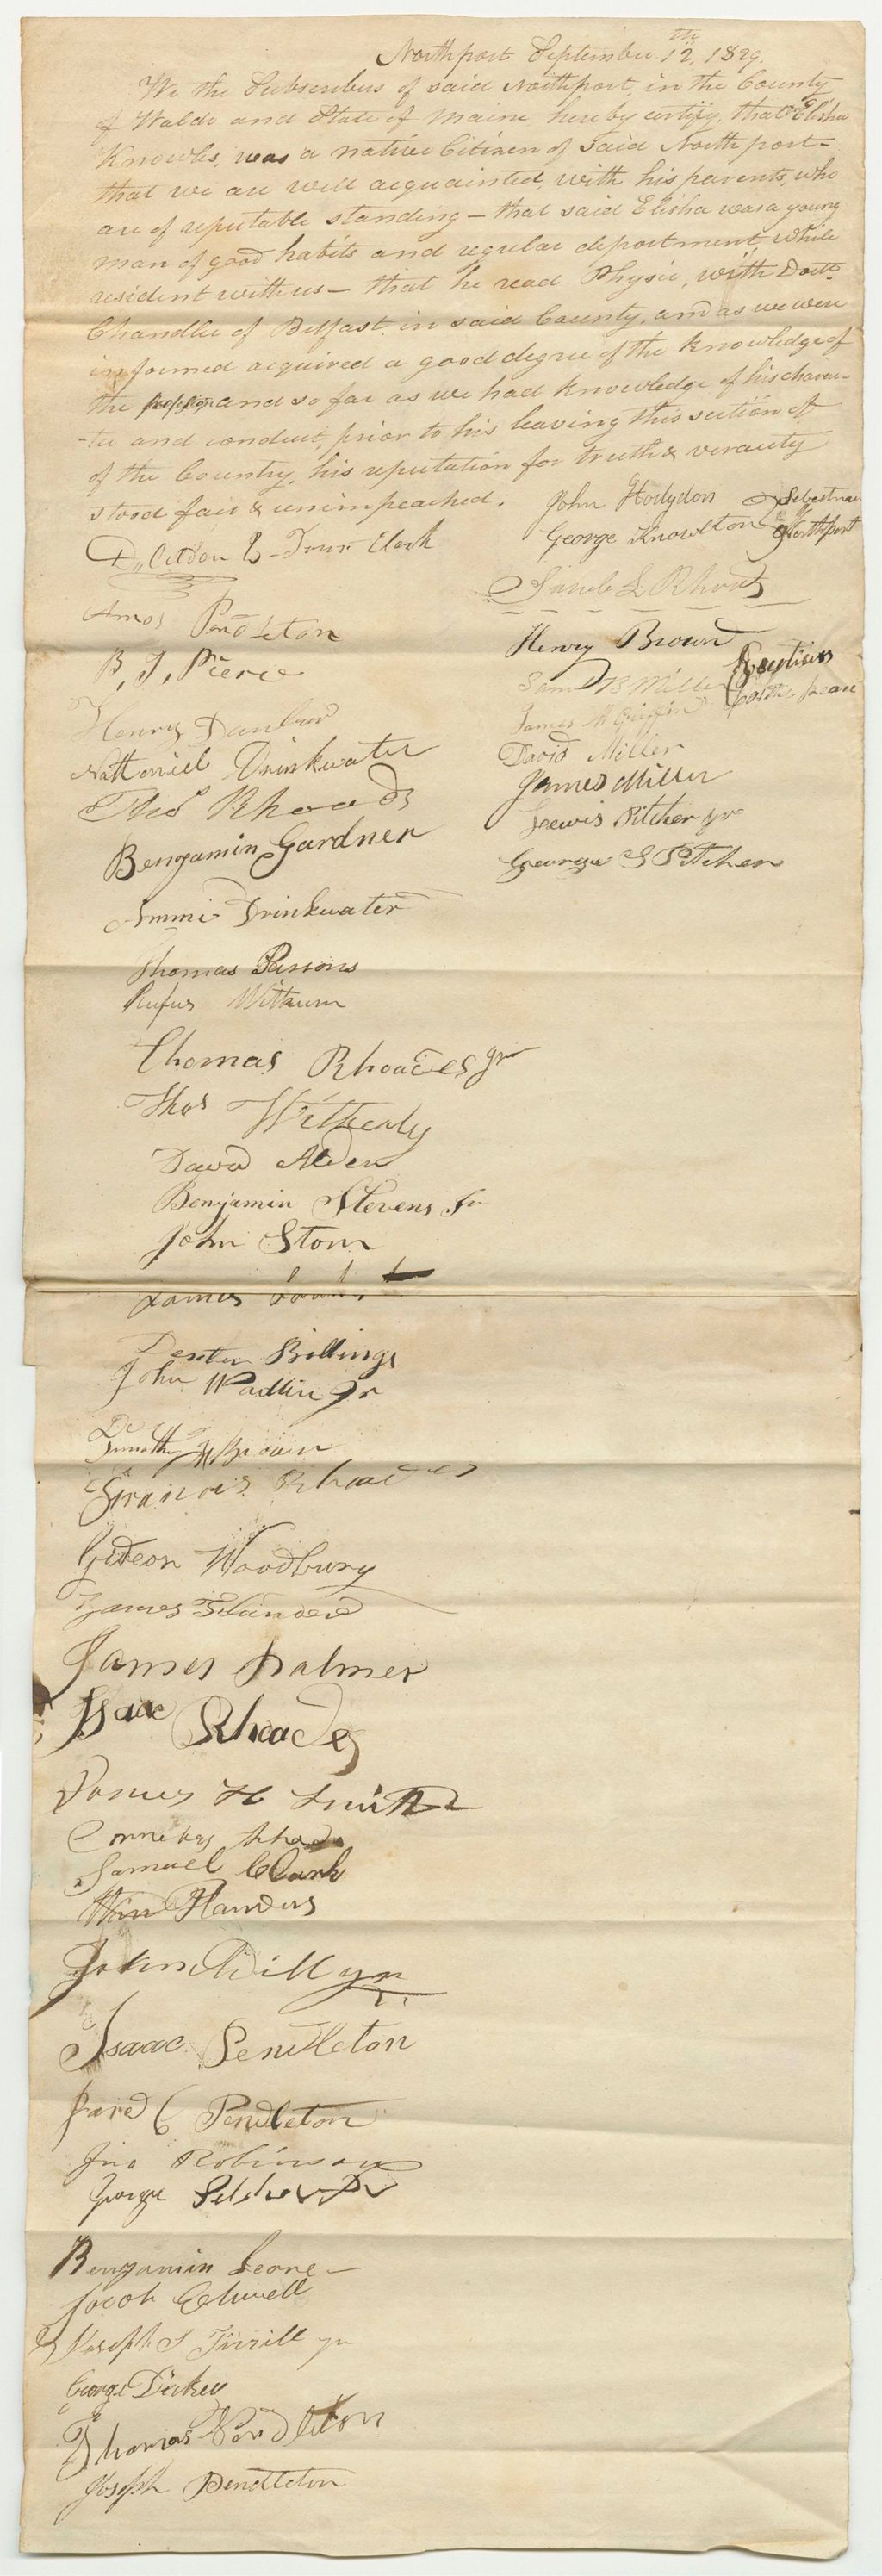 Northport September 12th, 1829.
We the Subscribers of said Northport, in the County
of Waldo and State of Maine hereby certify, that Elisha
Knowles, was a native Citizen of said Northport -
that we are well acquainted, with his parents, who
are of reputable standing - that said Elisha was a young
man of good habits and regular deportment, while
resident with us - that he read Physic, with Doctr
Chandler of Belfast, in said County, and as we were
informed acquired a good degree of the knowledge of
the and so far as we had knowledge of his charac-
-ter and conduct, prior to his leaving this section of
of the Country, his reputation for truth & veracity
stood fair & unimpeached.
John Hodgdon
George Knowlton
Selectmen
of Northport
Town Clerk
Amos Pendleton
B, J, Pierce
Henry
Nathaniel Drinkwater
Thos Rhoads
Benjamin Gardner
Ammi Drinkwater
Thomas Parsons
Rufus
Thomas Rhoades Jr
Thos
David Alden
Benjamin Stevens Jr
John Storn
James
Dexter Billings
John Wadlin Jr
Timothy Brown
Francis Rhoades
Gideon Woodbury
James
James Palmer
Isaac Rhoades
James H Smith
Cornelius Rhoads
Samuel Clark
Wm Flanders
John Dill jr
Isaac Pendleton
Jared C Pendleton
Jno Robinson
George
Benjamin
Jacob Elwell
Joseph S Tirrill jr
George Dickey
Thomas Pendleton
Joseph Pendleton
Jacob L Rhoads
Henry Brown
Saml B Miller
James M Griffin
Justices
of the peace
David Miller
James Miller
Lewis Pitcher jr
George S Pitcher